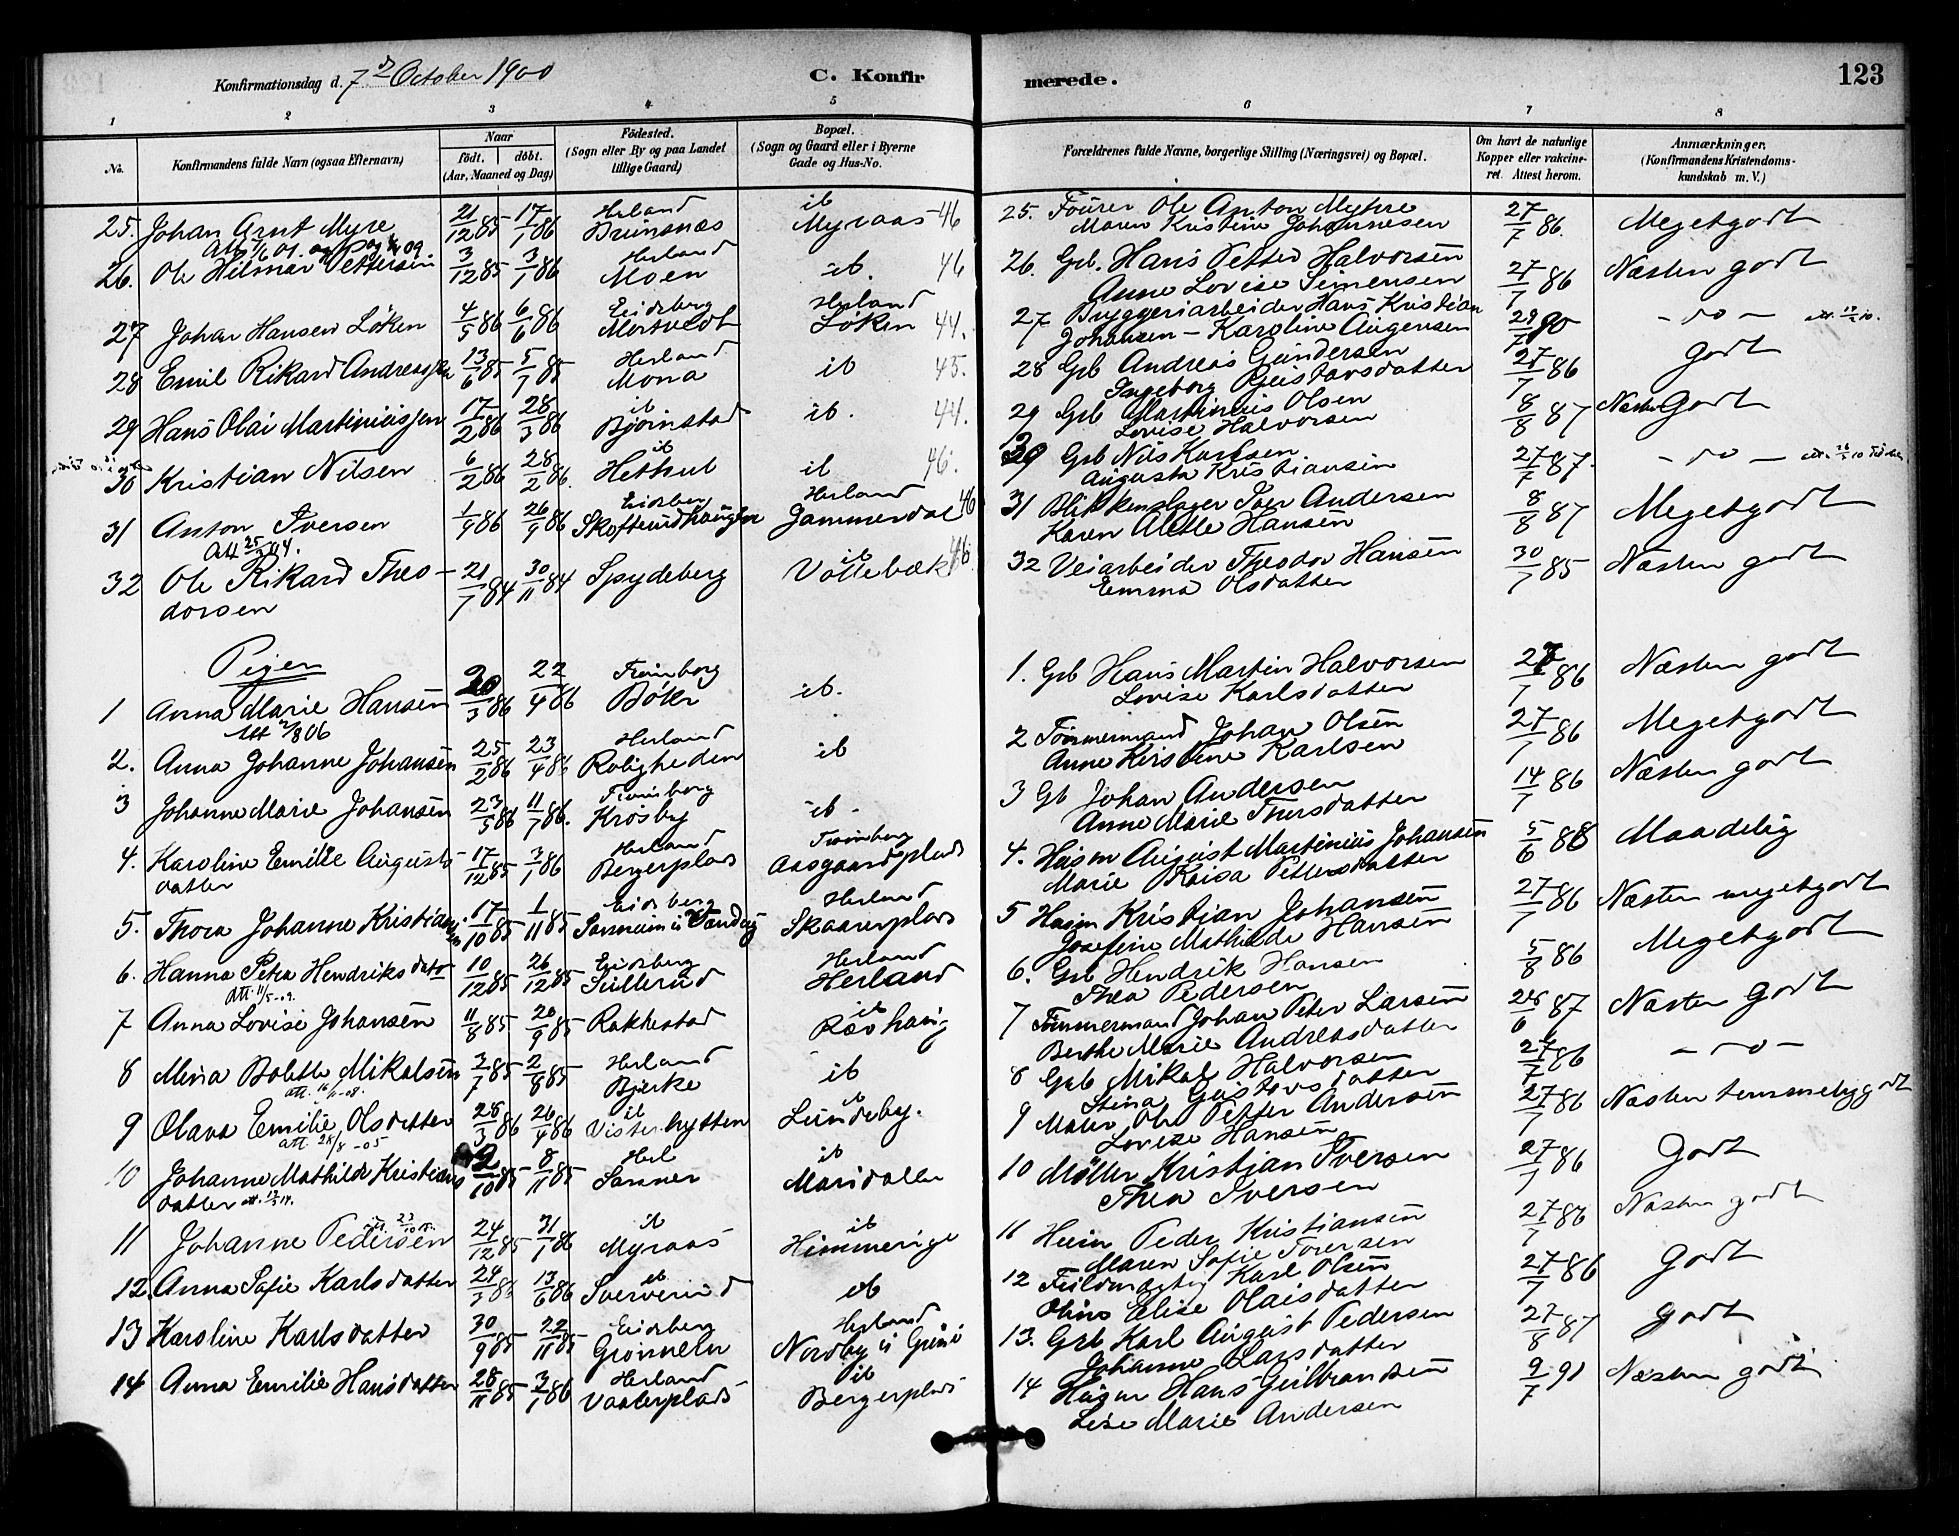 Konfirmationsdag d. 7de October 1900
C. Konfirmerede.
123
1 2 3 4 5 6 7 8
No.
Konfirmandens fulde Navn (ogsaa Efternavn)
Naar
födt. döbt.
(Aar, Maaned og Dag)
Födested.
(Sogn eller By og paa Landet
tillige Gaard)
Bopæl.
(Sogn og Gaard eller i Byerne
Gade og Hus-No.
Forældrenes fulde Navne, borgerlige Stilling (Næringsvei) og Bopæl.
Om havt de naturlige
Kopper eller vakcine-
ret. Attest herom.
Anmærkninger.
(Konfirmandens Kristendoms-
kundskab m. V.)
25. Johan Arnt Myre 21/12 85 17/1 86 Herland Brunsnæs ib Myraas 46
25. Fourer Ole Anton Myhre
Maren Kristine Johannesen 27/7 86. Megetgodt
26. Ole Hilmar Pettersen 3/12 85 3/1 86 Herland Moen ib. 46
26. Grb. Hans Petter Halvorsen
Anne Lovise Simensen 27/7 86 Næsten godt
27 Johan Hansen Løken 4/5 86 6/6 86 Eidsberg Mortvedt Herland Løken 44.
27 Bryggeriarbeider Hans Kristian
Johansen - Karoline Augensen 29/7 90 - do -
28 Emil Rikard Andreassen 13/6 85 5/7 85 Herland Mona ib 45.
28 Grb Andreas Gundersen
Ingeborg Gustavsdatter 27/7 86 Godt
29 Hans Olai Martiniussen 17/2 86 28/3 86 ib Bjørnstad ib. 44.
29 Grb Martinius Olsen
Lovise Halvorsen 8/8 87 Næsten Godt
30 Kristian Nilsen 6/2 86 28/2 86. ib ib 46.
30 Grb Nils Karlsen
Augusta Kristiansen 27/7 87. - do -
31 Anton Iversen 1/9 86 26/9 86 Eidsberg Herland Gammerdal 46
Att 25/2 04.
31 Blikkenslager Iver Andersen
Karen Alette Hansen 8/8 87 Megetgodt
32 Ole Rikard Theo-
dorsen 21/7 84 30/11 84 Spydeberg ib Vollebæk 46
32 Veiarbeider Theodor Hansen
Emma Olsdatter 30/7 85 Næsten godt
Piger
1 Anna Marie Hansen 20/3 86 22/4 86 Trømborg Böler ib.
Att 2/8 06
1. Grb Hans Martin Halvorsen
Lovise Karlsdatter 27/7 86 Næsten godt
2. Anna Johanne Johansen 25/2 86 23/4 86 Herland Roligheden ib
2 Tømmermand Johan Olsen
Anne Kirstine Karlsen 27/7 86 Megetgodt
3 Johanne Marie Johansen 23/5 86 11/7 86. Trømborg Krosby ib.
3 Gb Johan Andersen
Anne Marie Thorsdatter 14/7 86 Næsten godt
4. Karoline Emilie Augusts-
datter 17/12 85 3/1 86 Herland Bergerplads Trømborg Aasgaardsplads
4. Husm August Martinius Johansen
Marie Kaisa Pettersdatter 5/6 88 Maadelig
5. Thora Johanne Kristiansen 17/10 85 1/11 85 Eidsberg Herland Skaarerplads
5 Husm Kristian Johansen
Josefine Mathilde Hansen 27/7 86 Næsten megetgodt
6. Hanna Petra Hendriksdatter 10/12 85 26/12 85 Eidsberg Sullerud Herland Herland
Att. 11/5-09.
6. Grb Hendrik Hansen
Thea Pedersen 5/8 86 Megetgodt
7 Anna Lovise Johansen 11/8 85 20/9 85 Rakkestad ib Rævhaug
7 Tømmermand Johan Peter Larsen
Berthe Marie Andreasdatter 26/6 87 Næsten Godt
8 Mina Bolette Mikalsen 3/7 85 2/8 85 Herland Bjerke ib
8 Grb Mikal Halvorsen
Stina Gustavsdatter 27/7 86 - do -
9 Olava Emilie Olsdatter 28/3 86 26/4 86 ib Visterhytten ib Lundeby.
att. 28/8-05
9 Maler Ole Petter Andersen
Lovise Hansen 27/7 86 Næsten temmeliggodt
10 Johanne Mathilde Kristians
datter 2/10 85 8/11 85 Herl Sanner ib Maridalen
10 Møller Kristian Iversen
Thea Iversen 27/7 86 Godt
11 Johanne Pedersen 24/12 85 31/1 86 ib Myraas ib Himmerige
11 Huseier Peder Kristiansen
Maren Sofie Torersen 27/7 86 Næsten godt
12. Anna Sofie Karlsdatter 24/3 86 13/6 86 ib Sververud ib
12 Fuldmægtig Karl Olsen
Elise Olaisdatter 27/7 86 Godt
13 Karoline Karlsdatter 30/9 85 22/11 85 Eidsberg Grønneln Herland Nordby u
13. Grb Karl August Pedersen
Johanne Larsdatter 27/8 87 Godt
14 Anna Emilie Hansdatter 28/11 85 3/1 86 Herland Vaalerplads ib Bergerplads
14 Husm Hans Gulbrandsen
Lise Marie Andersen 9/7 91 Næsten godt